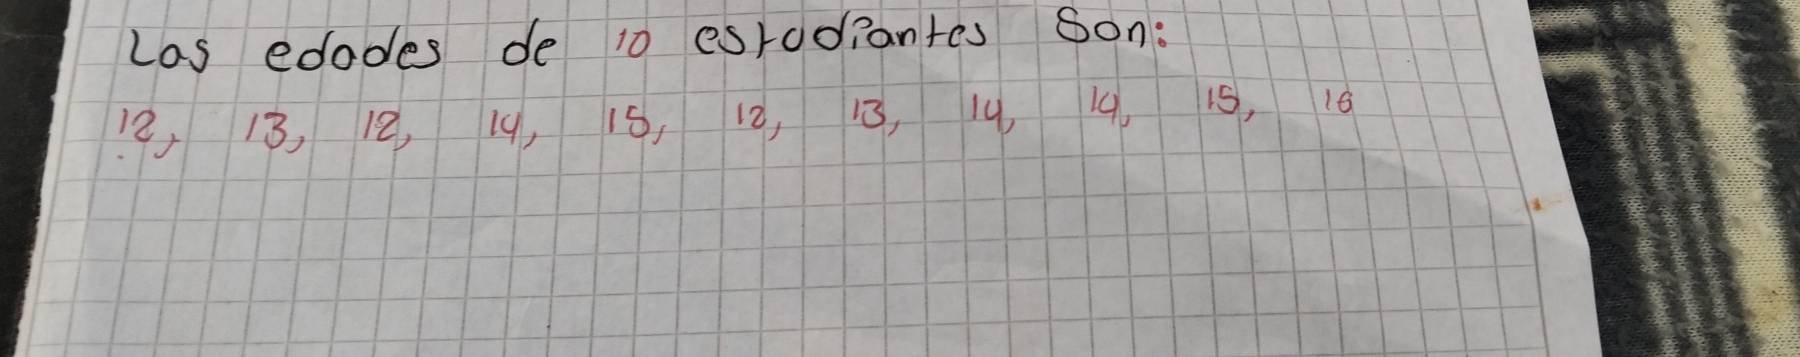 Las edades de 10 estudiantes son:
12, 13, 12, 14, 15, 12, 13, 14, 14, 15, 16